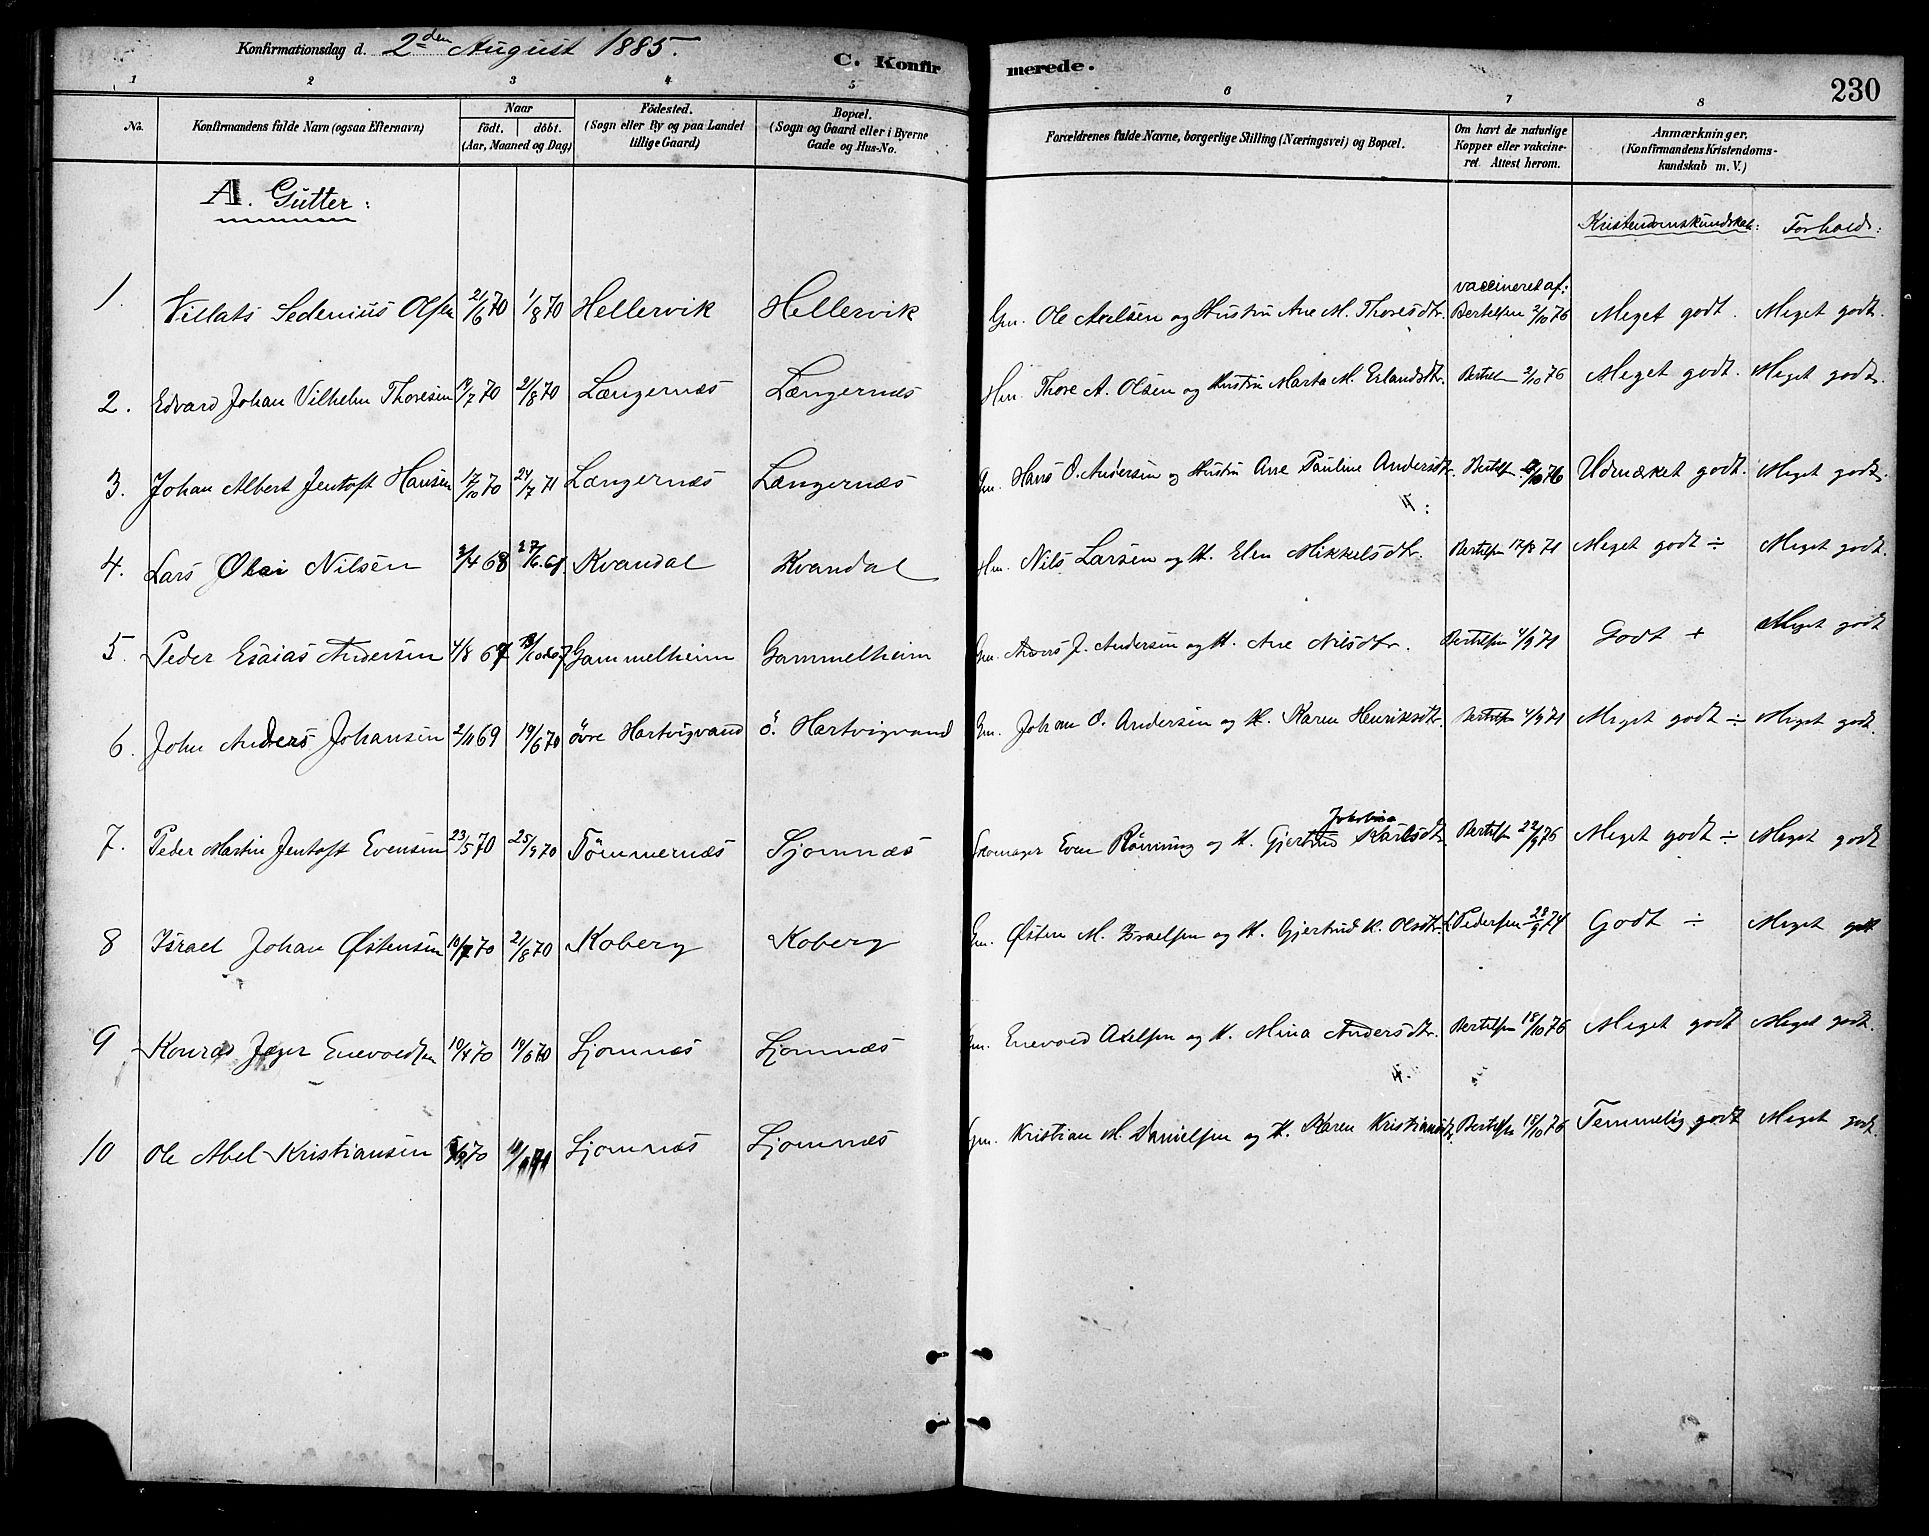 Konfirmationsdag d. 2den August 1885. C. Konfirmerede. 230
1 2 3 4 5 6 7 8
No. Konfirmandens fulde Navn (ogsaa Efternavn) Naar födt. döbt. (Aar, Maaned og Dag) Födested. (Sogn eller By og paa Landet tillige Gaard) Bopæl. (Sogn og Gaard eller i Byerne Gade og Hus-No. Forældrenes fulde Navne, borgerlige Stilling (Næringsvei) og Bopæl. Om havt de naturlige Kopper eller vakcineret. Attest herom. Anmærkninger, (Konfirmandens Kristendomskundskab m. V.)
A. Gutter:
Kristendomskundskab: Forhold:
vaccineret af:
1. Villats Sedenius Olsen 21/6 70 1/8 70 Hellervik Hellervik Gm. Ole Axelsen og Hustru Ane M. Thoresdtr. Bertelsen 2/10 76 Meget godt. Meget godt.
2. Edvard Johan Vilhelm Thoresen 19/7 70 21/8 70 Længernæs Længernæs Hm. Thore A. Olsen og Hustru Marta M. Erlandsdtr. Bertelsen 2/10 76 Meget godt. Meget godt.
3. Johan Albert Jentoft Hansen 17/10 70 24/7 71 Længernæs Længernæs Gm. Hans O. Andersen og Hustru Ane Pauline Andersdtr. Bertelsen 10 76 Udmærket godt. Meget godt.
4. Lars Olai Nilsen 3/4 68 27/6 68 Kvandal Kvandal Hm. Nils Larsen og H. Elen Mikkelsdtr. Bertelsen 17/8 71 Meget godt ÷ Meget godt.
5. Peder Esaias Andersen 4/8 67 Gammelheim Gammelheim Gm. Anders J. Andersen og H. Ane Nilsdtr. Bertelsen 4/9 71 Godt + Meget godt
6. John Anders Johansen 2/11 69 19/6 70 övre Hartvigvand ö. Hartvigvand Gm. Johan O. Andersen og H. Karen Henriksdtr. Bertelsen 4/9 71 Meget godt ÷ Meget godt.
Jakobina
7. Peder Martin Jentoft Evensen 23/5 70 25/9 70 Tömmernæs Sjomnæs Skomager Even Rönning og H. Gjertrud Karlsdtr. Bertelsen 22/9 76 Meget godt ÷ Meget godt
8 Israel Johan Østensen 10/7 70 21/8 70 Koberg Koberg Gm. Østen M. Israelsen og H. Gjertrud K. Olsdtr. Pedersen 28/9 74 Godt ÷ Meget godt
9 Konrad Jæger Enevoldsen 10/4 70 19/6 70 Ljomnæs Ljomnæs Gm. Enevold Axelsen og H. Mina Andersdtr. Bertelsen 18/10 76 Meget godt Meget godt.
10 Ole Abel Kristiansen 70 71 Ljomnæs Ljomnæs Gm. Kristian M. Danielsen og H. Karen Kristiansdtr. Bertelsen 18/10 76 Temmelig godt Meget godt.